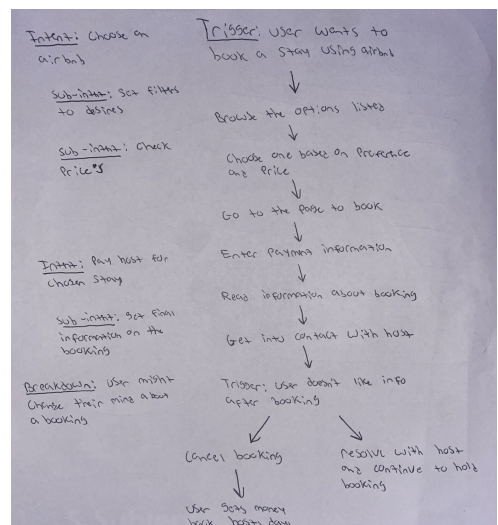 Intent: Choose an
airbnb
Sub-intent: Set filters
to desires
Sub-intent: Check
Price's
Intent: Pay host for
chosen stay
Sub-intent: Get final
information on the
booking
Breakdown: User might
change their mind about
a booking
Trigger: User wants to
book a stay using airbnb
Browse the options listed
Choose one based on Preference
and Price
Go to the page to book
Enter Payment information
Read information about booking
Get into contact with host
Trigger: User doesn't like info
after booking
Cancel booking
resolve with host
and continue to hold
booking
User gets money
back, host